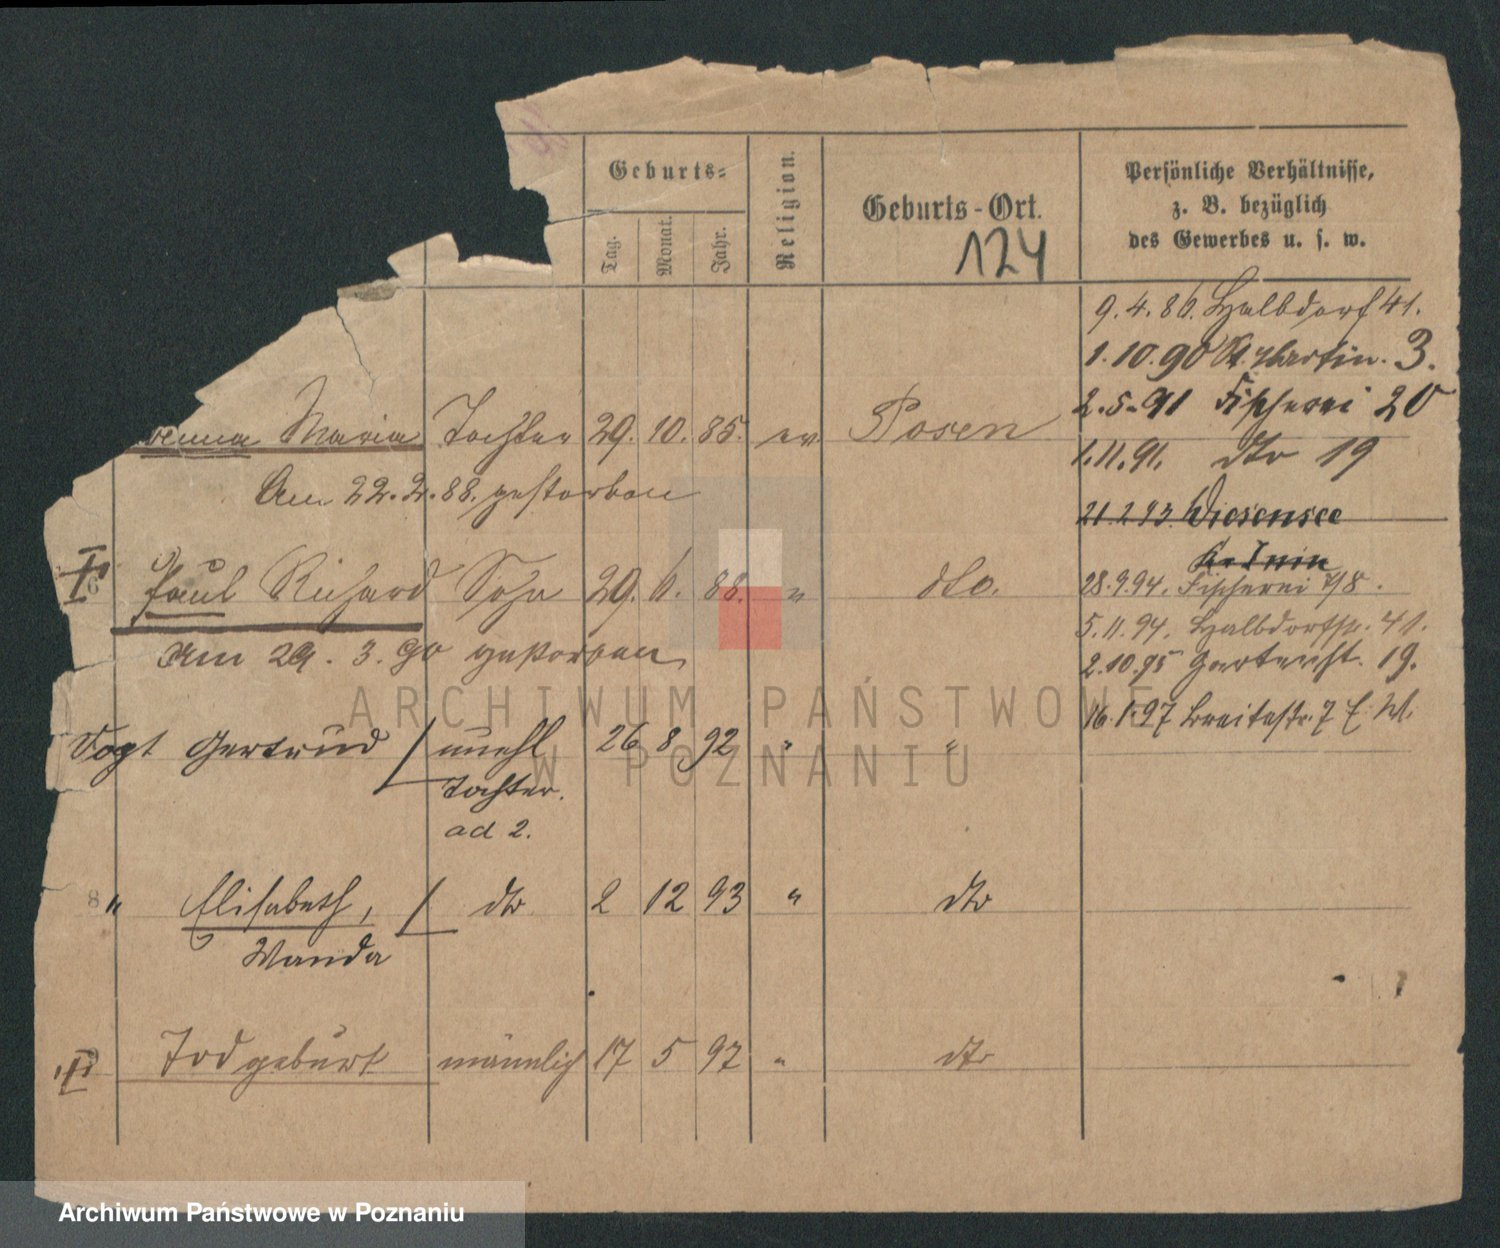 Geburts-
Tag.
Monat.
Jahr.
Religion.
Geburts-Ort.
124
Persönliche Verhältnisse,
z. B. bezüglich
des Gewerbes u. s. w.
9. 4. 86. Halbdorf 41.
1. 10. 90 St. Martin. 3.
2. 5. 91 Fischerei 20
Maria Tochter 29. 10. 85. ev Posen
1. 11. 91. dto 19
Am 22. 2. 88. gestorben
21. 2 93. Wiesensee
Kr Znin
6 Paul Richard Sohn 29. 6. 88. " dto.
28. 9. 94. Fischerei 7/8.
5. 11. 94. Halbdorfstr. 41.
Am 29. 3. 90 gestorben
2. 10. 95 Gartenst. 19.
16. 1. 97 Breitestr. 7 E. W.
Vogt Gertrud / unehl 26 8 92 " "
Tochter.
ad 2.
8 " Elisabeth, / dto 2 12 93 " dto
Wanda
Todgeburt männlich 17 5 97 " dto
ARCHIWUM PAŃSTWOWE
W POZNANIU
Archiwum Państwowe w Poznaniu